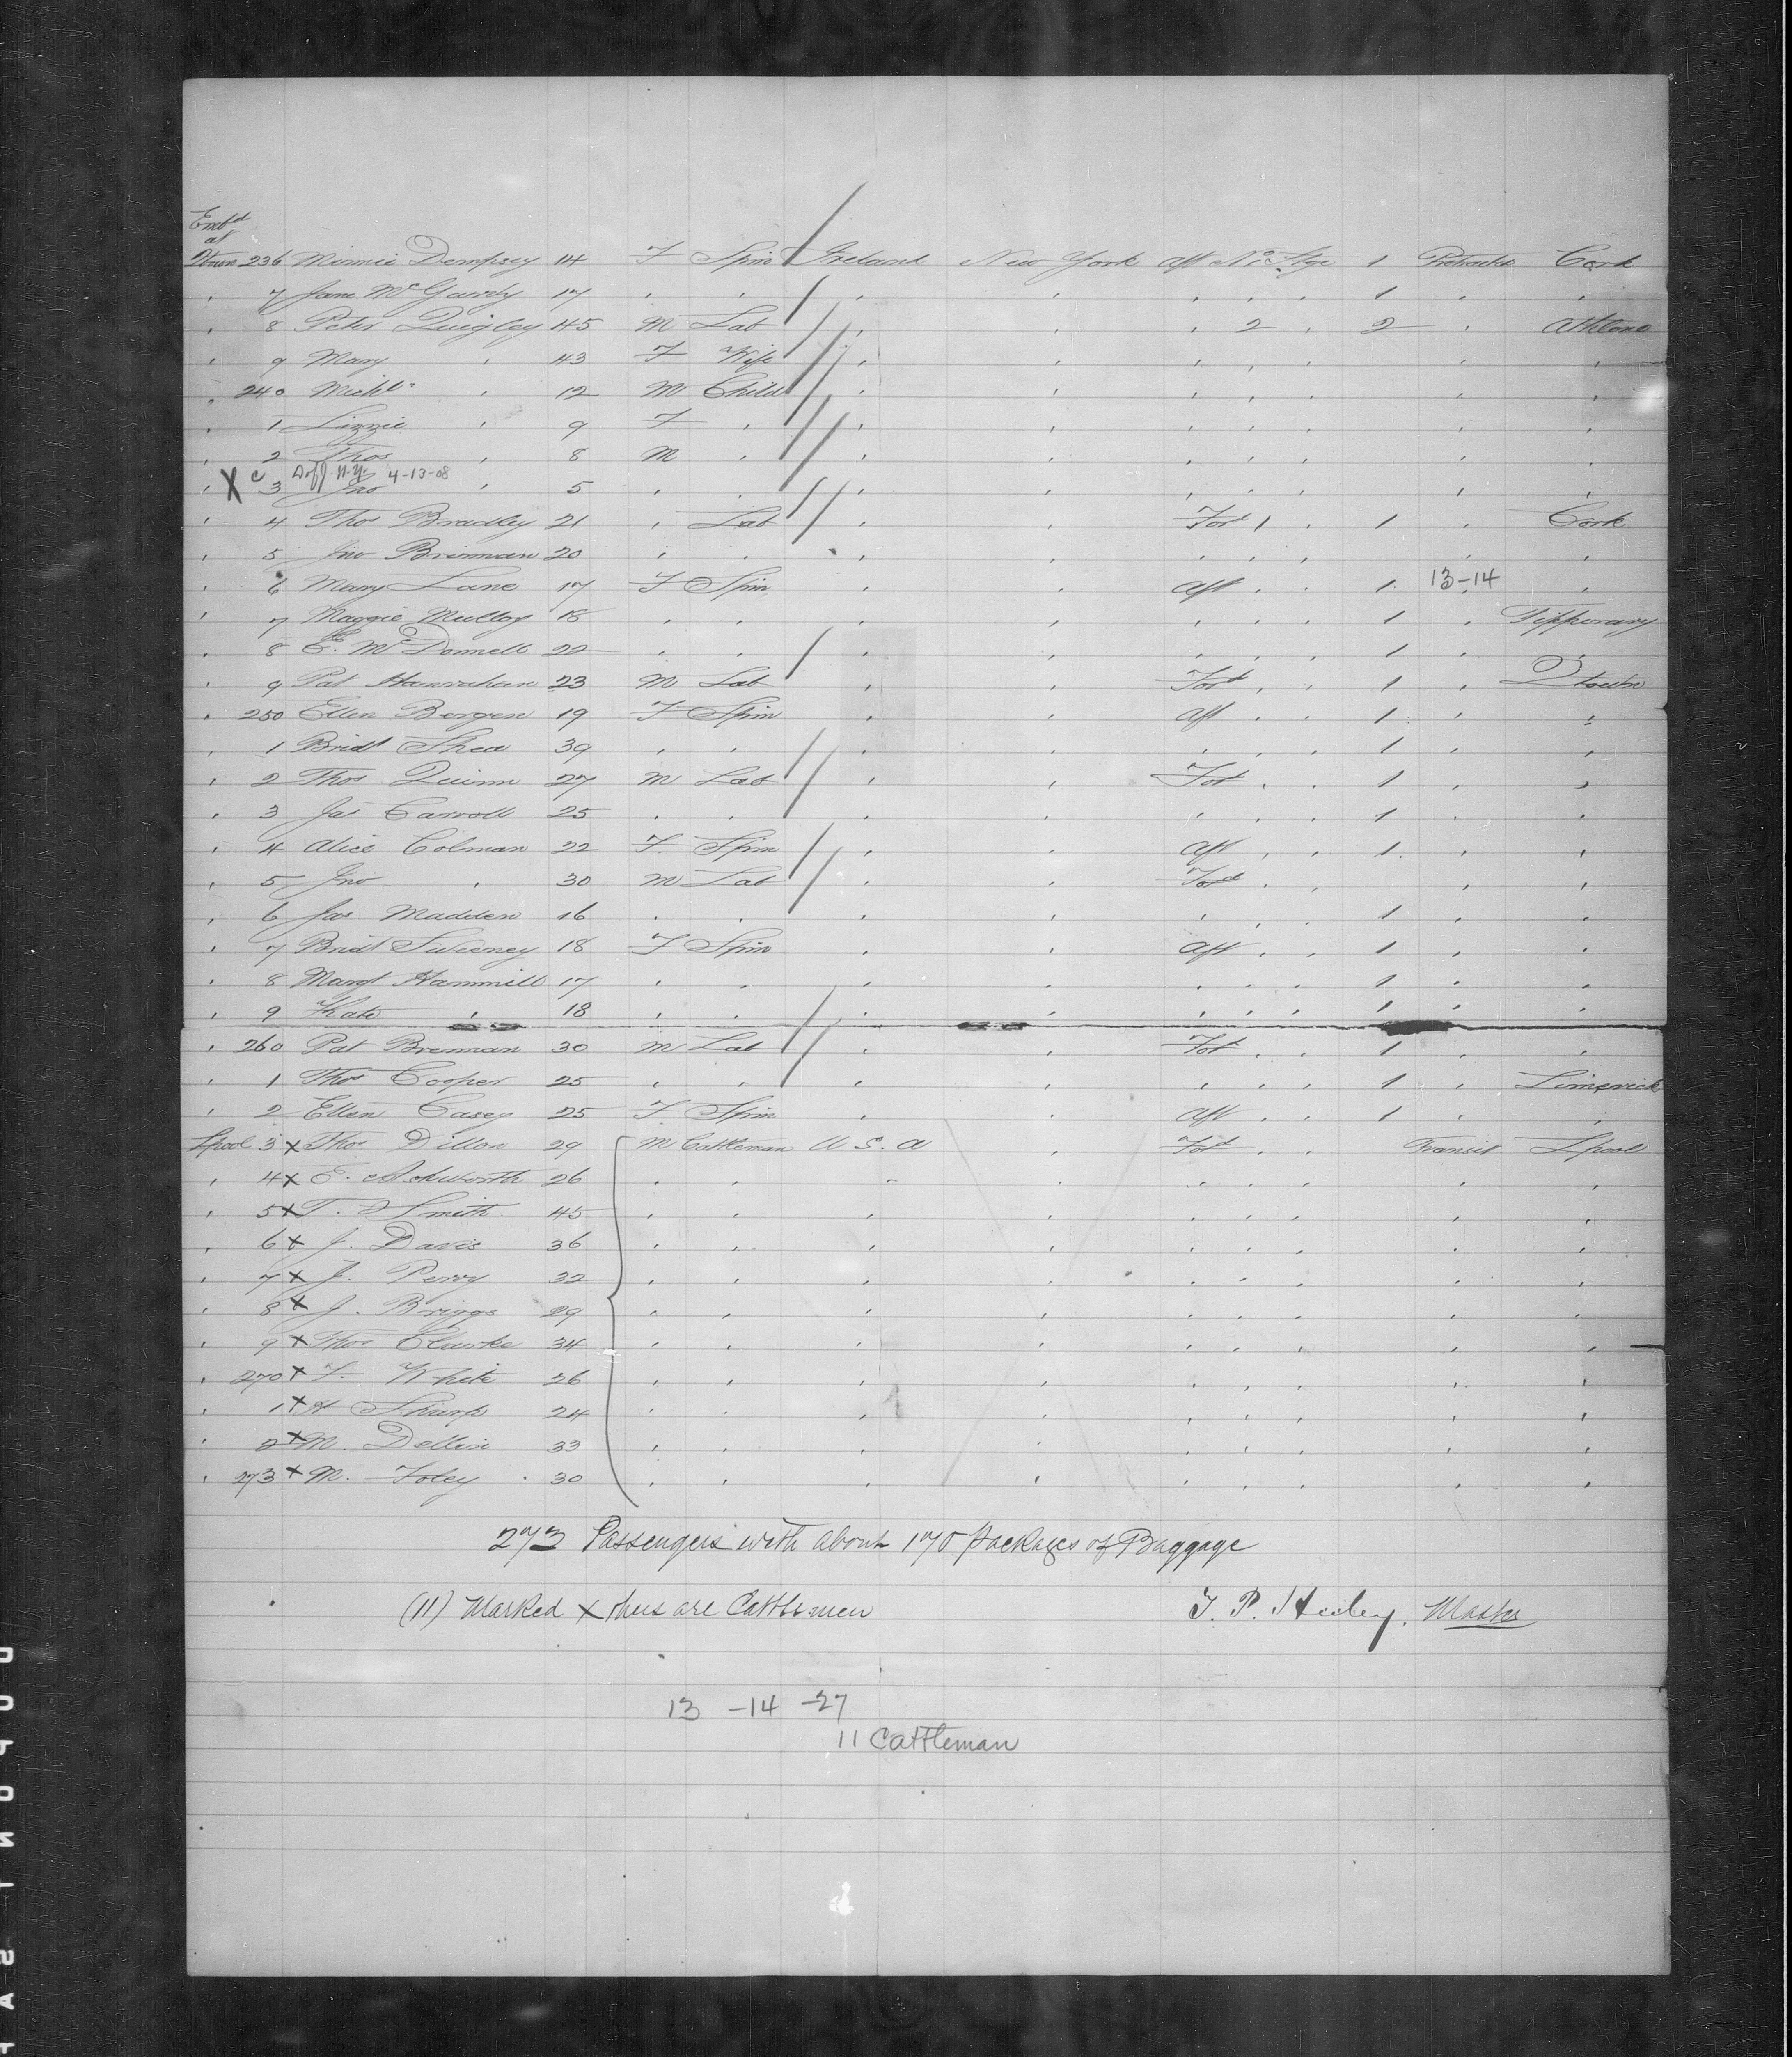 Emb'd
at
Qtown 236 Minnie Dempsey 14 F Spin Ireland New York Aft No 2 Stge 1 Protracted Cork
" 7 Jane McGurdy 17 " " " " " " " 1 " "
" 8 Peter Quigley 45 M Lab " " " 2 " 2 " Athlone
" 9 Mary " 43 F Wife " " " " " " "
" 240 Michl " 12 M Child " " " " " " "
" 1 Lizzie " 9 F " " " " " " " "
" 2 Thos " 8 M " " " " " " " "
X c Doff N.Y. 4-13-08
" 3 Jno " 5 " " " " " " " " "
" 4 Thos Bradley 21 " Lab " " Ford 1 " 1 " Cork
" 5 Jno Brinnan 20 " " " " " " " " "
" 6 Mary Lane 17 F Spin " " Aft " " 1 13-14 "
" 7 Maggie Mulloy 18 " " " " " " " 1 " Tipperary
" 8 E. McDonnell 22 " " " " " " " 1 "
" 9 Pat Hanrahan 23 M Lab " " Ford " " 1 " Qtown
" 250 Ellen Bergen 19 F Spin " " Aft " " 1 " "
" 1 Bridt Shea 39 " " " " " " " 1 " "
" 2 Thos Quinn 27 M Lab " " Fod " " 1 " "
" 3 Jas Carroll 25 " " " " " " " 1 " "
" 4 Alice Colman 22 F Spin " " Aft " " 1 " "
" 5 Jno " 30 M Lab " " Ford " " " "
" 6 Jas Madden 16 " " " " " " " 1 " "
" 7 Bridt Sweeney 18 F Spin " " Aft " " 1 " "
" 8 Margt Hammill 17 " " " " " " " 1 " "
" 9 Kate " 18 " " " " " " " 1 " "
" 260 Pat Brennan 30 M Lab " " Fod " " 1 " "
" 1 Thos Cooper 25 " " " " " " " 1 " Limerick
" 2 Ellen Casey 25 F Spin " " Aft " " 1 " "
Lpool 3 x Thos Dillon 29 M Cattleman U.S.A " Fod " " Transit Lpool
" 4 x E. Ashworth 26 " " " " " " " " "
" 5 x T. Smith 45 " " " " " " " " "
" 6 x J. Davis 36 " " " " " " " " "
" 7 x J. Perry 32 " " " " " " " " "
" 8 x J. Briggs 29 " " " " " " " " "
" 9 x Thos Clarke 34 " " " " " " " " "
" 270 x F. White 26 " " " " " " " " "
" 1 x H Sharp 24 " " " " " " " " "
" 2 x M. Dellin 33 " " " " " " " " "
" 273 x M. Foley 30 " " " " " " " " "
273 Passengers with about 170 packages of Baggage
(11) Marked x thus are Cattlemen T. P. Heeley. Master
13 - 14 - 27
11 Cattleman